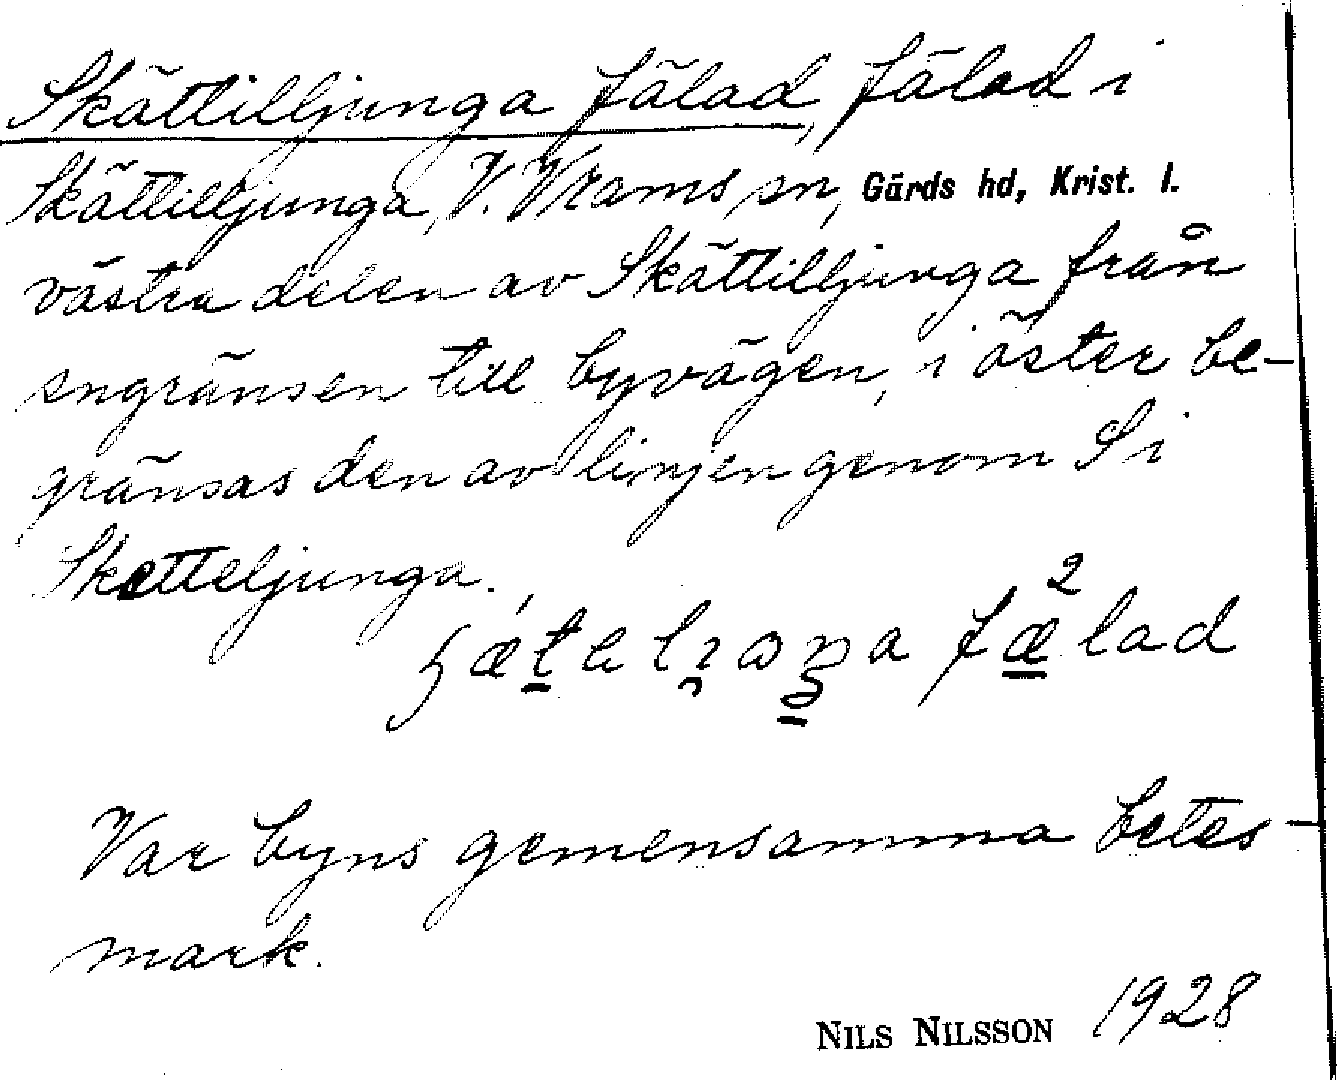 Skättilljunga fälad, fälad i
Skättilljunga, V. Vrams sn, Gärds hd, Krist. l.
västra delen av Skättilljunga från
sngränsen till byvägen, i öster be-
gränsas den av linjen genom S i
Sketteljunga.
2
fælad
Var byns gemensamma betes-
mark.
NILS NILSSON 1928